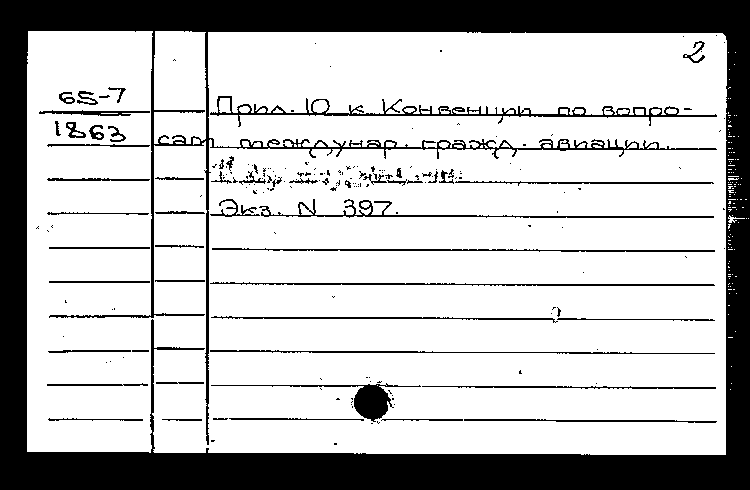 2
65-7
Прил. 10 к Конвенции по вопро-
1863
сам междунар. гражд. авиации.
Экз. N 397.